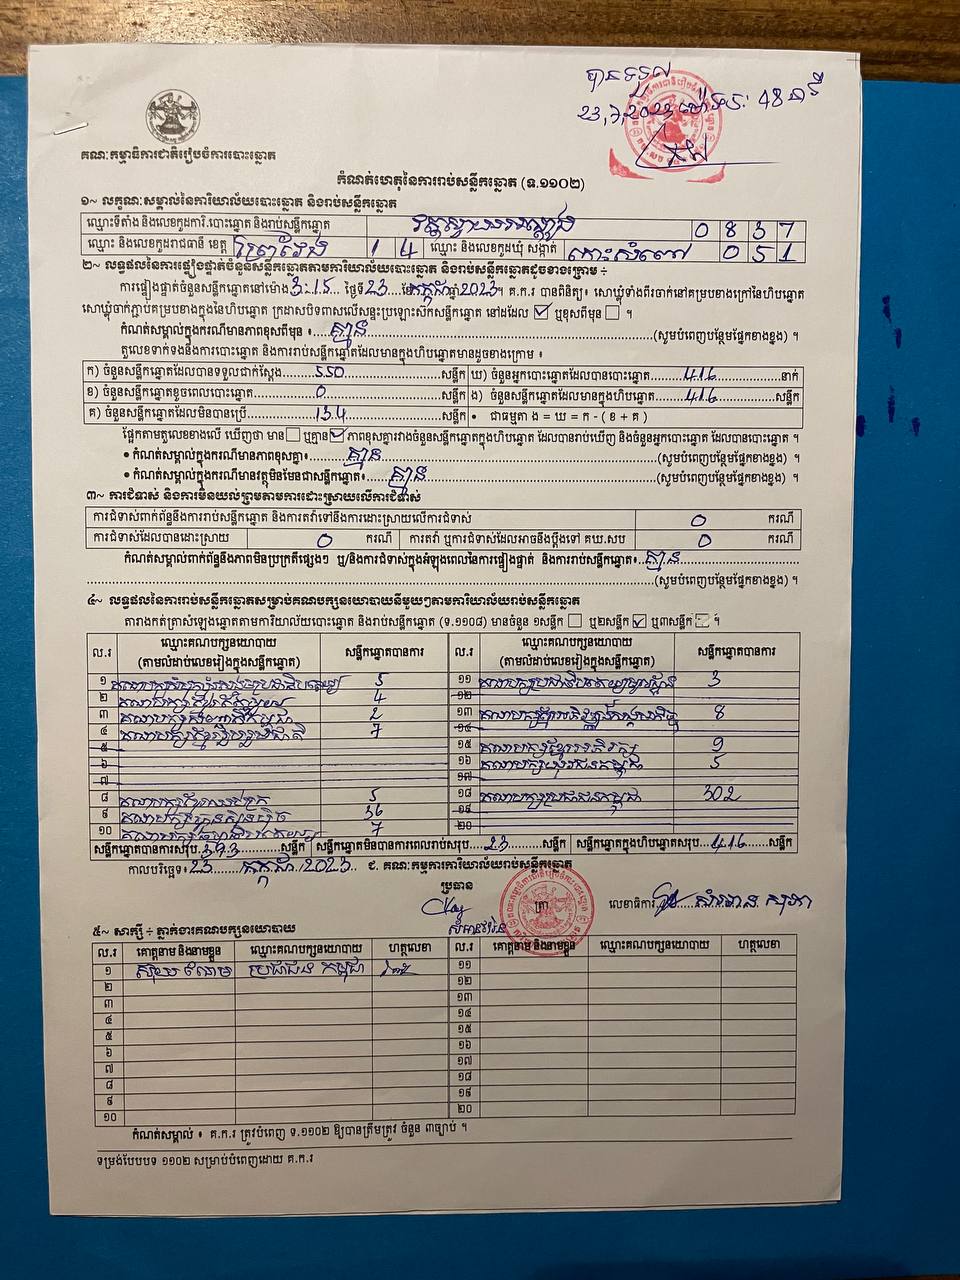 បានទទួល
គណៈកម្មាធិការជាតិរៀបចំការបោះឆ្នោត
កំណត់ហេតុនៃការរាប់សន្លឹកឆ្នោត (ទ.១១០២)
១~ លក្ខណៈសម្គាល់នៃការិយាល័យបោះឆ្នោត និងរាប់សន្លឹកឆ្នោត
ឈ្មោះទីតាំង និងលេខកូដការិ.បោះឆ្នោត និងរាប់សន្លឹកឆ្នោត 0 8 3 7
ឈ្មោះ និងលេខកូដរាជធានី ខេត្ត ព្រៃវែង 1 4 ឈ្មោះ និងលេខកូដឃុំ សង្កាត់ កោះសំពៅ 0 5 1
២~ លទ្ធផលនៃការផ្ទៀងផ្ទាត់ចំនួនសន្លឹកឆ្នោតតាមការិយាល័យបោះឆ្នោត និងរាប់សន្លឹកឆ្នោតដូចខាងក្រោម ÷
ការផ្ទៀងផ្ទាត់ចំនួនសន្លឹកឆ្នោតនៅម៉ោង 3:15 ថ្ងៃទី 23 ខែ កក្កដា ឆ្នាំ 2023 ។ គ.ក.រ បានពិនិត្យ៖ សោឃ្លុំទាំងពីរចាក់នៅគម្របខាងក្រៅនៃហិប
សោឃ្លុំចាក់ភ្ជាប់គម្របខាងក្នុងនៃហិបឆ្នោត ក្រដាសបិទពាសលើសន្ទះប្រឡោះស៊កសន្លឹកឆ្នោត នៅដដែល ឬខុសពីមុន ។
កំណត់សម្គាល់ក្នុងករណីមានភាពខុសពីមុន ៖ គ្មាន (សូមបំពេញបន្ថែមផ្នែកខាងខ្នង) ។
តួលេខទាក់ទងនឹងការបោះឆ្នោត និងការរាប់សន្លឹកឆ្នោតដែលមានក្នុងហិបឆ្នោតមានដូចខាងក្រោម ៖
ក) ចំនួនសន្លឹកឆ្នោតដែលបានទទួលជាក់ស្តែង 550 សន្លឹក ឃ) ចំនួនអ្នកបោះឆ្នោតដែលបានបោះឆ្នោត 416 នាក់
ខ) ចំនួនសន្លឹកឆ្នោតខូចពេលបោះឆ្នោត 0 សន្លឹក ង) ចំនួនសន្លឹកឆ្នោតដែលមានក្នុងហិបឆ្នោត 416 សន្លឹក
គ) ចំនួនសន្លឹកឆ្នោតដែលមិនបានប្រើ 134 សន្លឹក • ជាធម្មតា ង = ឃ = ក - ( ខ + គ )
ផ្អែកតាមតួលេខខាងលើ ឃើញថា មាន ឬគ្មាន ភាពខុសគ្នារវាងចំនួនសន្លឹកឆ្នោតក្នុងហិបឆ្នោត ដែលបានរាប់ឃើញ និងចំនួនអ្នកបោះឆ្នោត ដែលបានបោះឆ្នោត ។
• កំណត់សម្គាល់ក្នុងករណីមានភាពខុសគ្នា៖ គ្មាន (សូមបំពេញបន្ថែមផ្នែកខាងខ្នង) ។
• កំណត់សម្គាល់ក្នុងករណីមានវត្ថុមិនមែនជាសន្លឹកឆ្នោត៖ គ្មាន (សូមបំពេញបន្ថែមផ្នែកខាងខ្នង) ។
៣~ ការជំទាស់ និងការមិនយល់ព្រមតាមការដោះស្រាយលើការជំទាស់
ការជំទាស់ពាក់ព័ន្ធនឹងការរាប់សន្លឹកឆ្នោត និងការតវ៉ាទៅនឹងការដោះស្រាយលើការជំទាស់ 0 ករណី
ការជំទាស់ដែលបានដោះស្រាយ 0 ករណី ការតវ៉ា ឬការជំទាស់ដែលអាចនឹងប្តឹងទៅ គឃ.សប 0 ករណី
កំណត់សម្គាល់ពាក់ព័ន្ធនឹងភាពមិនប្រក្រតីផ្សេងៗ ឬ/និងការជំទាស់ក្នុងអំឡុងពេលនៃការផ្ទៀងផ្ទាត់ និងការរាប់សន្លឹកឆ្នោត៖ គ្មាន
(សូមបំពេញបន្ថែមផ្នែកខាងខ្នង) ។
៤~ លទ្ធផលនៃការរាប់សន្លឹកឆ្នោតសម្រាប់គណបក្សនយោបាយនីមួយៗតាមការិយាល័យរាប់សន្លឹកឆ្នោត
តារាងកត់ត្រាសំឡេងឆ្នោតតាមការិយាល័យបោះឆ្នោត និងរាប់សន្លឹកឆ្នោត (ទ.១១០៨) មានចំនួន ១សន្លឹក ឬ២សន្លឹក ឬ៣សន្លឹក ។
ល.រ ឈ្មោះគណបក្សនយោបាយ (តាមលំដាប់លេខរៀងក្នុងសន្លឹកឆ្នោត) សន្លឹកឆ្នោតបានការ ល.រ ឈ្មោះគណបក្សនយោបាយ (តាមលំដាប់លេខរៀងក្នុងសន្លឹកឆ្នោត) សន្លឹកឆ្នោតបានការ
១ 5 ១១ 3
២ 4 ១២
៣ 2 ១៣ 8
៤ 7 ១៤
៥ ១៥ 9
៦ ១៦ គណបក្សយុវជនកម្ពុជា 5
៧ ១៧
៨ 5 ១៨ គណបក្សប្រជាជនកម្ពុជា 302
៩ គណបក្សហ៊្វុនស៊ិនប៉ិច 36 ១៩
១០ 7 ២០
សន្លឹកឆ្នោតបានការសរុប 393 សន្លឹក សន្លឹកឆ្នោតមិនបានការពេលរាប់សរុប 23 សន្លឹក សន្លឹកឆ្នោតក្នុងហិបឆ្នោតសរុប 416 សន្លឹក
កាលបរិច្ឆេទ៖ 23 កក្កដា 2023 ជ. គណៈកម្មការការិយាល័យរាប់សន្លឹកឆ្នោត
ប្រធាន ត្រា លេខាធិការ
៥~ សាក្សី ÷ ភ្នាក់ងារគណបក្សនយោបាយ
ល.រ គោត្តនាម និងនាមខ្លួន ឈ្មោះគណបក្សនយោបាយ ហត្ថលេខា ល.រ គោត្តនាម និងនាមខ្លួន ឈ្មោះគណបក្សនយោបាយ ហត្ថលេខា
១ ប្រជាជន កម្ពុជា ១១
២ ១២
៣ ១៣
៤ ១៤
៥ ១៥
៦ ១៦
៧ ១៧
៨ ១៨
៩ ១៩
១០ ២០
កំណត់សម្គាល់ ៖ គ.ក.រ ត្រូវបំពេញ ទ.១១០២ ឱ្យបានត្រឹមត្រូវ ចំនួន ៣ច្បាប់ ។
ទម្រង់បែបបទ ១១០២ សម្រាប់បំពេញដោយ គ.ក.រ